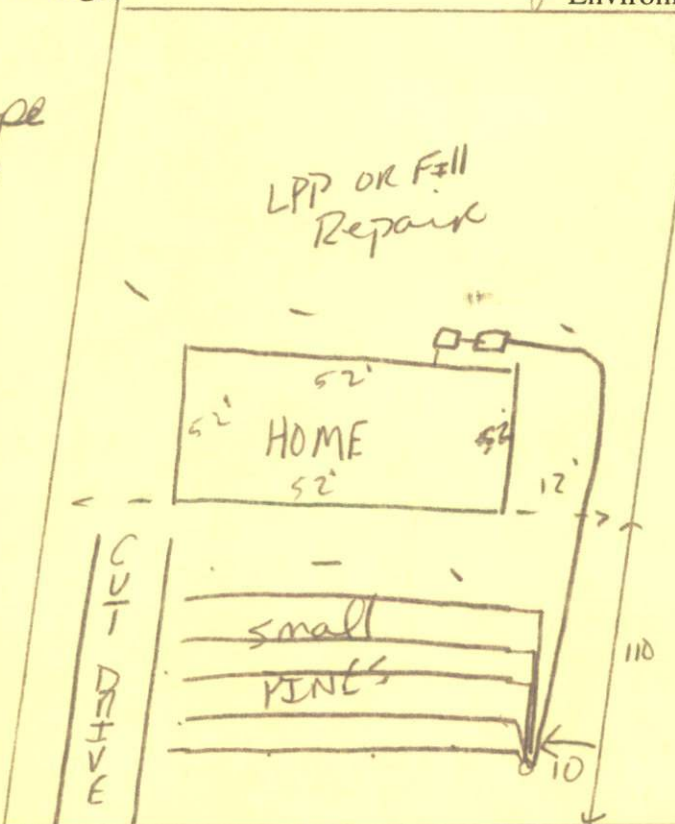 LPP OR Fill
Repair
52'
52'
HOME
52'
52'
12'
CUT DRIVE
small
PINES
110
10